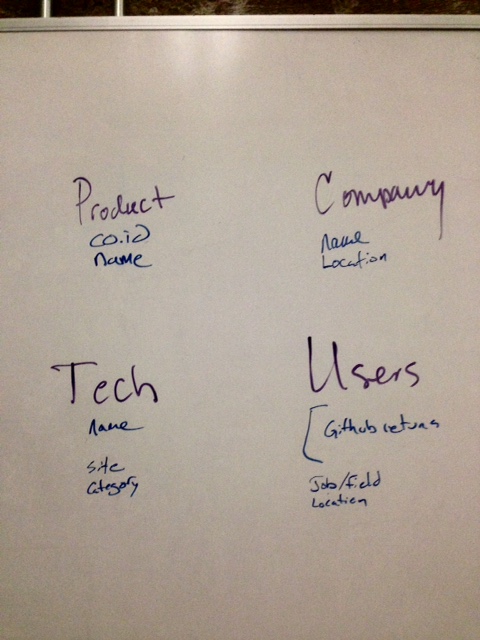 Product
co.id
name
Company
name
Location
Tech
name
site
category
Users
Github returns
Job/field
Location